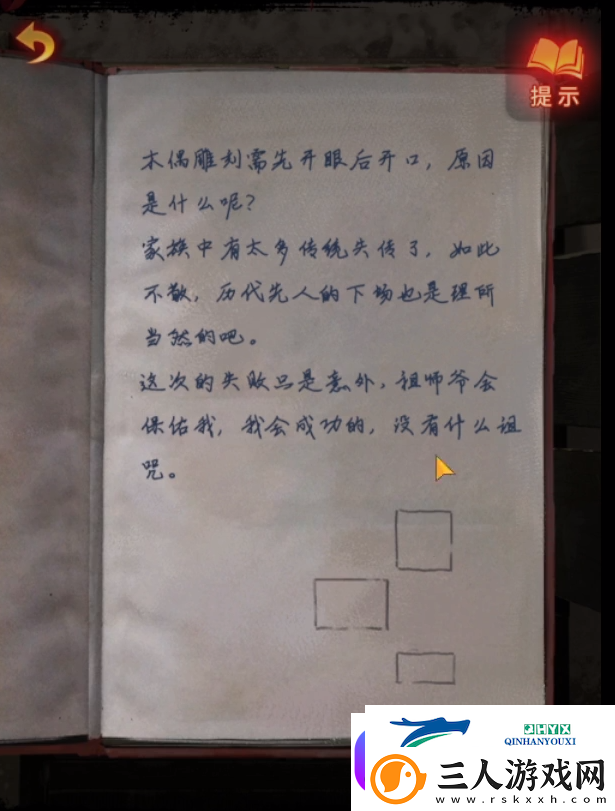 提示
木偶雕刻需先开眼后开口，原因
是什么呢？
家族中有太多传统失传了，如此
不敬，历代先人的下场也是理所
当然的吧。
这次的失败只是意外，祖师爷会
保佑我，我会成功的，没有什么诅
咒。
QHYX
QINHANYOUXI
三人游戏网
www.rskxxh.com